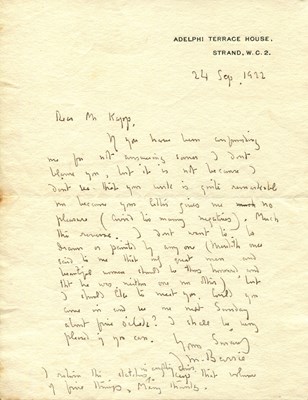 ADELPHI TERRACE HOUSE,
STRAND, W.C. 2.
24 Sep. 1922
Dear Mr Kapp.
If you have been anathematising
me for not answering sooner I don't
blame you, but it is not because I
don't see that your work is quite remarkable
nor because your letter gives me no
pleasure (excuse so many negatives). Much
the reverse. I don't want to be
drawn or painted by any one (Meredith once
said to me that only great men and
beautiful women should be thus honoured and
that he was neither one nor t'other) but
I should like to meet you. Could you
come in and see me next Sunday
about five o'clock? I shall be very
pleased if you can.
Yours sincerely
J. M. Barrie
I return the sketches in
keep that volume
of fine things. Many thanks.